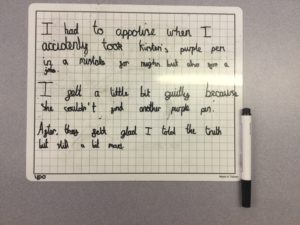 I had to appotise when I
accidenly took Kirsten's purple pen
in a mistake for nughn but also for a
I felt a little bit guilty because
she couldn't find another purple pen.
After, they felt glad I told the truth
but still a bit
YPO